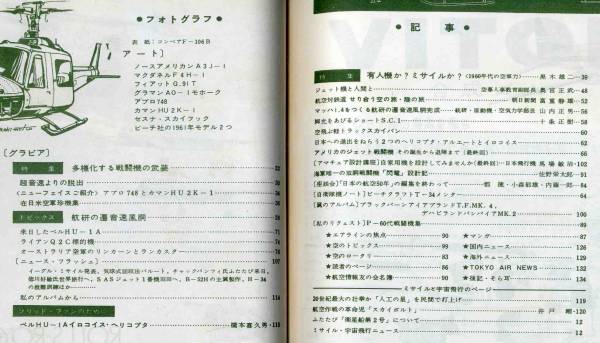 ●フォトグラフ●
表 紙：コンベアF-106B
アート〕
ノースアメリカンA3J-Ⅰ
マクダネルF4H-Ⅰ
フィアットG.91T
グラマンAO-Ⅰモホーク
アブロ748
カマンHU2K-Ⅰ
セスナ・スカイフック
ビーチ社の1961年モデル2つ
〔グラビア〕
特 集 多様化する戦闘機の武装
超音速よりの脱出
〈ニューフェイスご紹介〉アブロ748とカマンHU2K-Ⅰ
在日米空軍珍機集
トピックス 航研の遷音速風胴
来日したベルHU-1A 71
ライアンQ2C標的機 74
オーストラリア空軍のリンカーンとランカスター
〔ニュース・フラッシュ〕 107
私のアルバムから 114
ソリッド・ファンのために
ベルHU-1Aイロコイス・ヘリコプタ 橋本喜久男・118
●記 事●
特 集 有人機か？ミサイルか？（1960年代の空軍力） 黒木雄二・39
ジェット機と人間と 空幕人事教育副部長 奥宮正武・48
航空対鉄道 せり合う空の旅・陸の旅 朝日新聞 富重静雄・50
マッハ1.4をつくる航研の遷音速風胴完成 航研・原動機・空気力学部長 山内正男・56
脚光をあびるショートSC.1 十条正樹・58
空飛ぶ軽トラックスカイバン 60
日本への進出をねらう2つのヘリコプタ・アルエートとイロコイス 62
アメリカのジェット戦闘機 その誕生から退陣まで（最終回） 66
〔アマチュア設計講座〕自家用機を設計してみませんか（最終回） 日本飛行機 馬場敏治・102
海軍唯一の双胴戦闘機「閃電」設計記 佐野栄太郎・91
〔自衛隊機ノート〕ビーチクラフトT-34メンター 64
〔翼のアルバム〕ブラックバーンアイアブランドT.F.MK.4、
デハビランドバンパイアMK.2 100
〔私のリクエスト〕P-60代戦闘機集 89
★エアラインの焦点 90
★空のトピックス 99
★空のロータリ 83
★読者のページ 86
★航空情報友の会名簿
★マンガ 87
★国内ニュース 126
★海外ニュース 129
★TOKYO AIR NEWS 132
★後記・そら耳 134
ミサイルと宇宙飛行のページ
20世紀最大の壮挙か「人工の星」を民間で打上げ 119
航空作戦の革命児「スカイボルト」 井戸剛・120
ふたたび「衛星船第2号」について 12
ミサイル・宇宙飛行ニュース 12